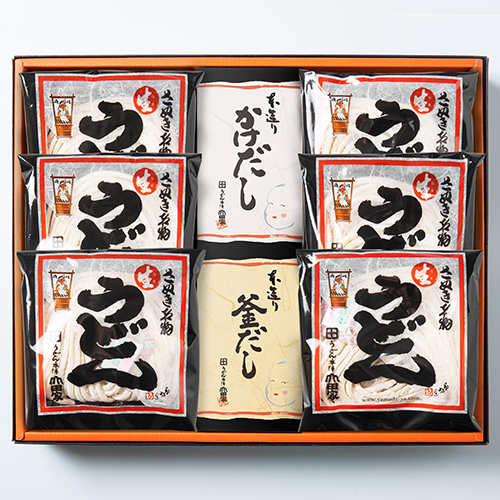 生
さぬき名物
うどん
本造り
かけだし
うどん本陣
山田家
生
さぬき名物
うどん
生
さぬき名物
うどん
生
さぬき名物
うどん
生
さぬき名物
うどん
うどん本陣
山田家
本造り
釜だし
うどん本陣
山田家
生
さぬき名物
うどん
うどん本陣
山田家
www.yamada-ya.com